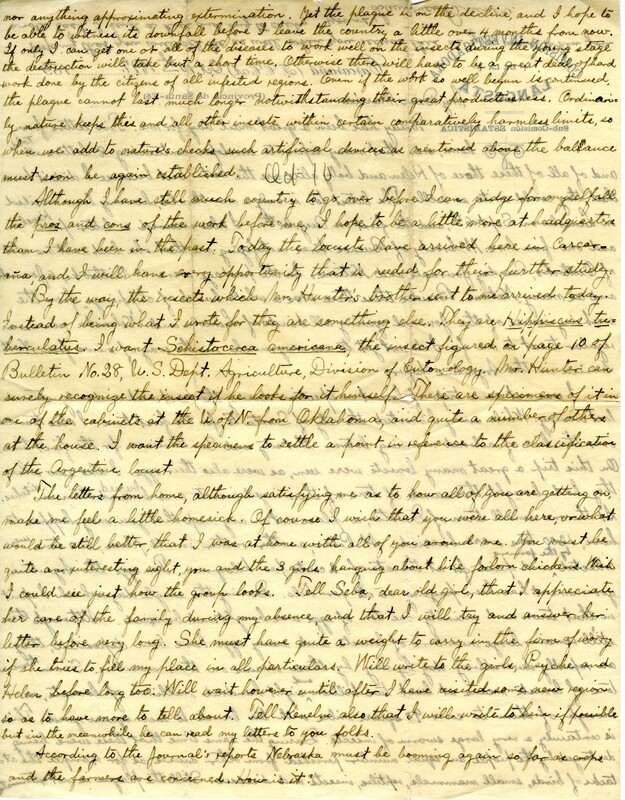 nor anything approximating extermination. Yet the plague is on the decline, and I hope to
be able to witness its downfall before I leave the country a little over months from now.
If only I can get one or all of the diseases to work well on the insects during the young stage
the destruction will take but a short time. Otherwise there will have to be a great deal of hard
work done by the citizens of all infested regions. Even if the work so well begun is continued,
the plague cannot last much longer notwithstanding their great productiveness. Ordinari-
ly nature keeps this and all other insects within certain comparatively harmless limits, so
when we add to nature's checks such artificial devices as mentioned above the ballance
must soon be again established.
Although I have still much country to go over before I can judge for myself all
the pros and cons of the work before me, I hope to be a little more at headquarters
than I have been in the past. Today the locusts have arrived here in Carcar-
aña and I will have every opportunity that is needed for their further study.
By the way, the insects which Mr. Hunter's brother sent to me arrived today.
Instead of being what I wrote for they are something else. They are Hippiscus tu-
berculatus. I want Schistocerca americana, the insect figured on page 10 of
Bulletin No. 28, U.S. Dept. Agriculture, Division of Entomology. Mr. Hunter can
surely recognize the insect if he looks for it himself. There are specimens of it in
one of the cabinets at the U. of N. from Oklahoma, and quite a number of others
at the house. I want the specimens to settle a point in reference to the classification
of the Argentine locust.
The letters from home, although satisfying me as to how all of you are getting on,
make me feel a little homesick. Of course I wish that you were all here, or what
would be still better, that I was at home with all of you around me. You must be
quite an interesting sight, you and the 3 girls hanging about like forlorn chickens. Wish
I could see just how the group looks. Tell Seba, dear old girl, that I appreciate
her care of the family during my absence, and that I will try and answer her
letter before very long. She must have quite a weight to carry in the form of worry
if she tries to fill my place in all particulars. Will write to the girls, Psyche and
Helen before long too. Will wait however until after I have visited some new region
so as to have more to tell about. Tell Kenelm also that I will write to him if possible
but in the meanwhile he can read my letters to you folks.
According to the Journal's reports Nebraska must be booming again so far as crops
and the farmers are concerned. How is it?